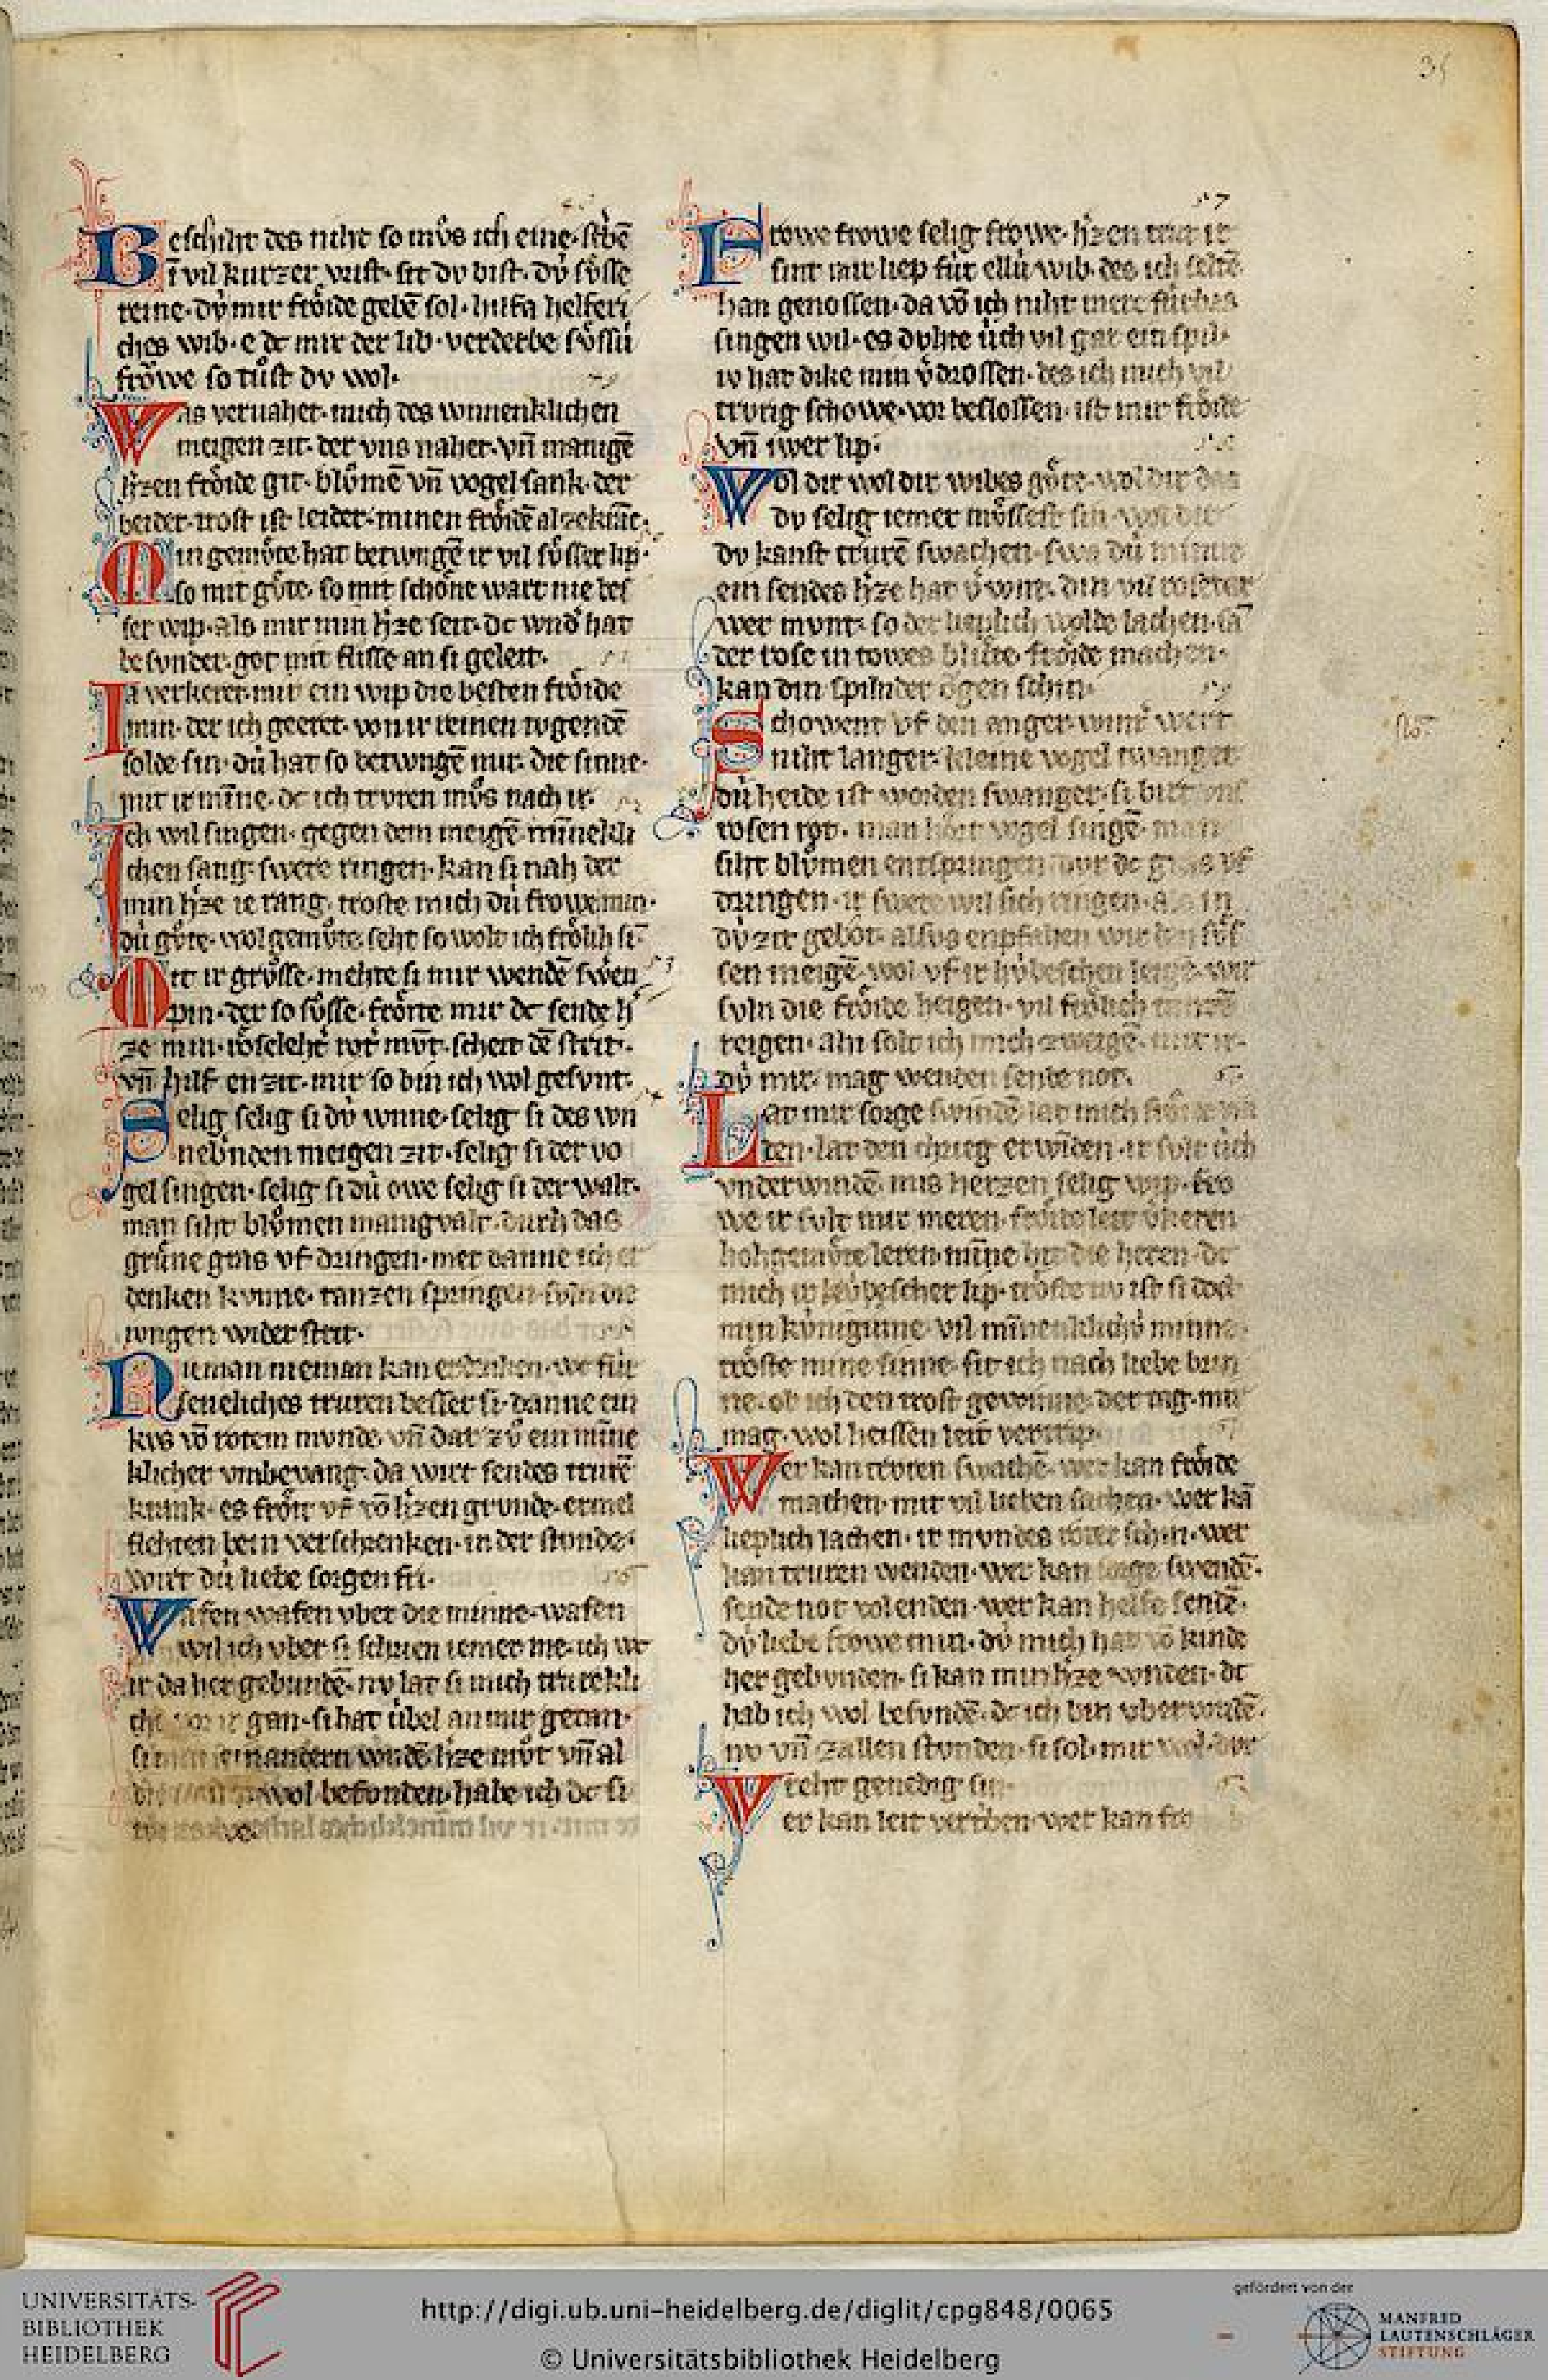 35
Beschiht des niht so mvͦs ich eine sterbē
ī vil kurzer vrist sit dv bist dv́ svͤsse
reine dv́ mir froͤide gebē sol hilfa helferi
ches wib e dc mir der lib verderbe svͤssú
froͮwe so tuͦst dv wol
Was vervahet mich des wunneklichen
meigen zit der vns nahet vn̄ manigē
h̓zen froͤide git blvͦmē vn̄ vogel sank der
beider trost ist leider minen froͤidē al ze krāc
Min gemvͤte hat betwngē ir vil svͤsser lip
so mit gvͤte so mit schoͤne wart nie bes
ser wip als mir min h̓ze seit dc wnd̓ hat
besvnder got mit flisse an si geleit
Ia verkeret mir ein wip die besten froͤide
min der ich geeret von ir reinen tvgendē
solde sin dú hat so betwngē mir die sinne
mit ir mīne dc ich trvren mvͦs nach ir
Ich wil singen gegen dem meigē mīnekli
chen sang swere ringen kan si nah der
min h̓ze ie rang troste mich dú frowe min
dú gvͤte wol gemvͤte seht so wolt ich froͤlih sī
Mit ir grvͤsse mehte si mir wendē swēn 53
pin der so svͤsse froͤite mir dc sende h̓
ze min roͤseleht rot mvͦt scheit dē strit
vn̄ hilf en zit mir so bin ich wol gesvnt
Selig selig si dv́ wnne selig si des wn
nebnden meigen zit selig si der vo
gel singen selig si dú owe selig si der walt
man siht blvͦmen manigvalt durh das
grüne gras vf dringen mer danne ich er
denken kvnne tanzen springen svln die
jvngen wider strit
Nieman nieman kan erdenken wc für
seneliches truren besser si danne ein
kvs vō rotem mvnde vn̄ dar zvͦ ein mīne
klicher vmbevang da wirt sendes trurē
krank es froͤit vf vō h̓zen grunde ermel
flehten bein verschrenken in der stvnde
wirt dú liebe sorgen fri
Wafen wafen vber die minne wafen
wil ich vber si schrien iemer me ich wc
ir da her gebundē nv lat si mich trurekli
che vor ir gan si hat übel an mir getan
wol befvnden habe ich dc si
57
Frowe frowe selig frowe h̓zen trut ir
sint mir liep für ellú wib des ich seltē
han genossen da vō ich niht mere fúrbas
singen wil es dvhte úch vil gar ein spil
iv hat dike min v̓drossen des ich mich vil
trvrig schowe vor beslossen ist mir froͤide
vn̄ iwer lip
Wol dir wol dir wibes gvͤte wol dir das
dv selig iemer mvͤssest sin wol dir
dv kanst trurē swachen swa dú minne
ein sendes h̓ze hat v̓wnt din vil roseroter
wer mvnt so der lieplich wolde lachen sā
der rose in towes blvͤte froͤide machen
kan din spilnder oͮgen schin
Schowent vf den anger wint̓ wert
niht langer kleine vogel twanger
dú heide ist worden swanger si birt vns
rosen rot man hoͤrt vogel singē man
siht blvͦmen entspringen dvr dc gras vf
dringen ir swere wil sich ringen als in
dv́ zit gebot alsvs enpfahen wir den svͤs
sen meigē wol vf ir hv́beschen leigē wir
svln die froͤide heigen vil froͤlich
reigen ahi solt ich mich zweigē mit ir
dv́ mir mag wenden sende not
Lat mir sorge swindē lat mich froͤide vin
den lat den chrieg erwīden ir svlt úch
vnderwindē mis herzen selig wip fro
we ir svlt mir meren froͤide leit v̓keren
hohgemvͤte leren mīne
mich ir kv́bescher lip troͤste nv ist si doch
min kúniginne vil mīnenklichv́ minne
troͤste mine sinne sit ich nach liebe brin
ne ob ich den trost gewinne der mag mir
mag wol heissen leit vertrip
Wer kan trvren swachē wer kan froͤide
machen mir vil lieben sachen wer kā
lieplich lachen ir mvndes roter schin wer
kan truren wenden wer kan sorge swendē
sende not volenden wer kan helfe sendē
dv́ liebe frowe min dv́ mich hat vō kinde
her gebvnden si kan min h̓ze wnden dc
hab ich wol befvndē dc ich bin vberwndē
nv vn̄ zallen stvnden si sol mir wol dvr
reht genedig sin
Wer kan leit vertriben wer kan fro
UNIVERSITÄTS-
BIBLIOTHEK
HEIDELBERG
http://digi.ub.uni-heidelberg.de/diglit/cpg848/0065
© Universitätsbibliothek Heidelberg
gefördert von der
MANFRED
LAUTENSCHLÄGER
STIFTUNG